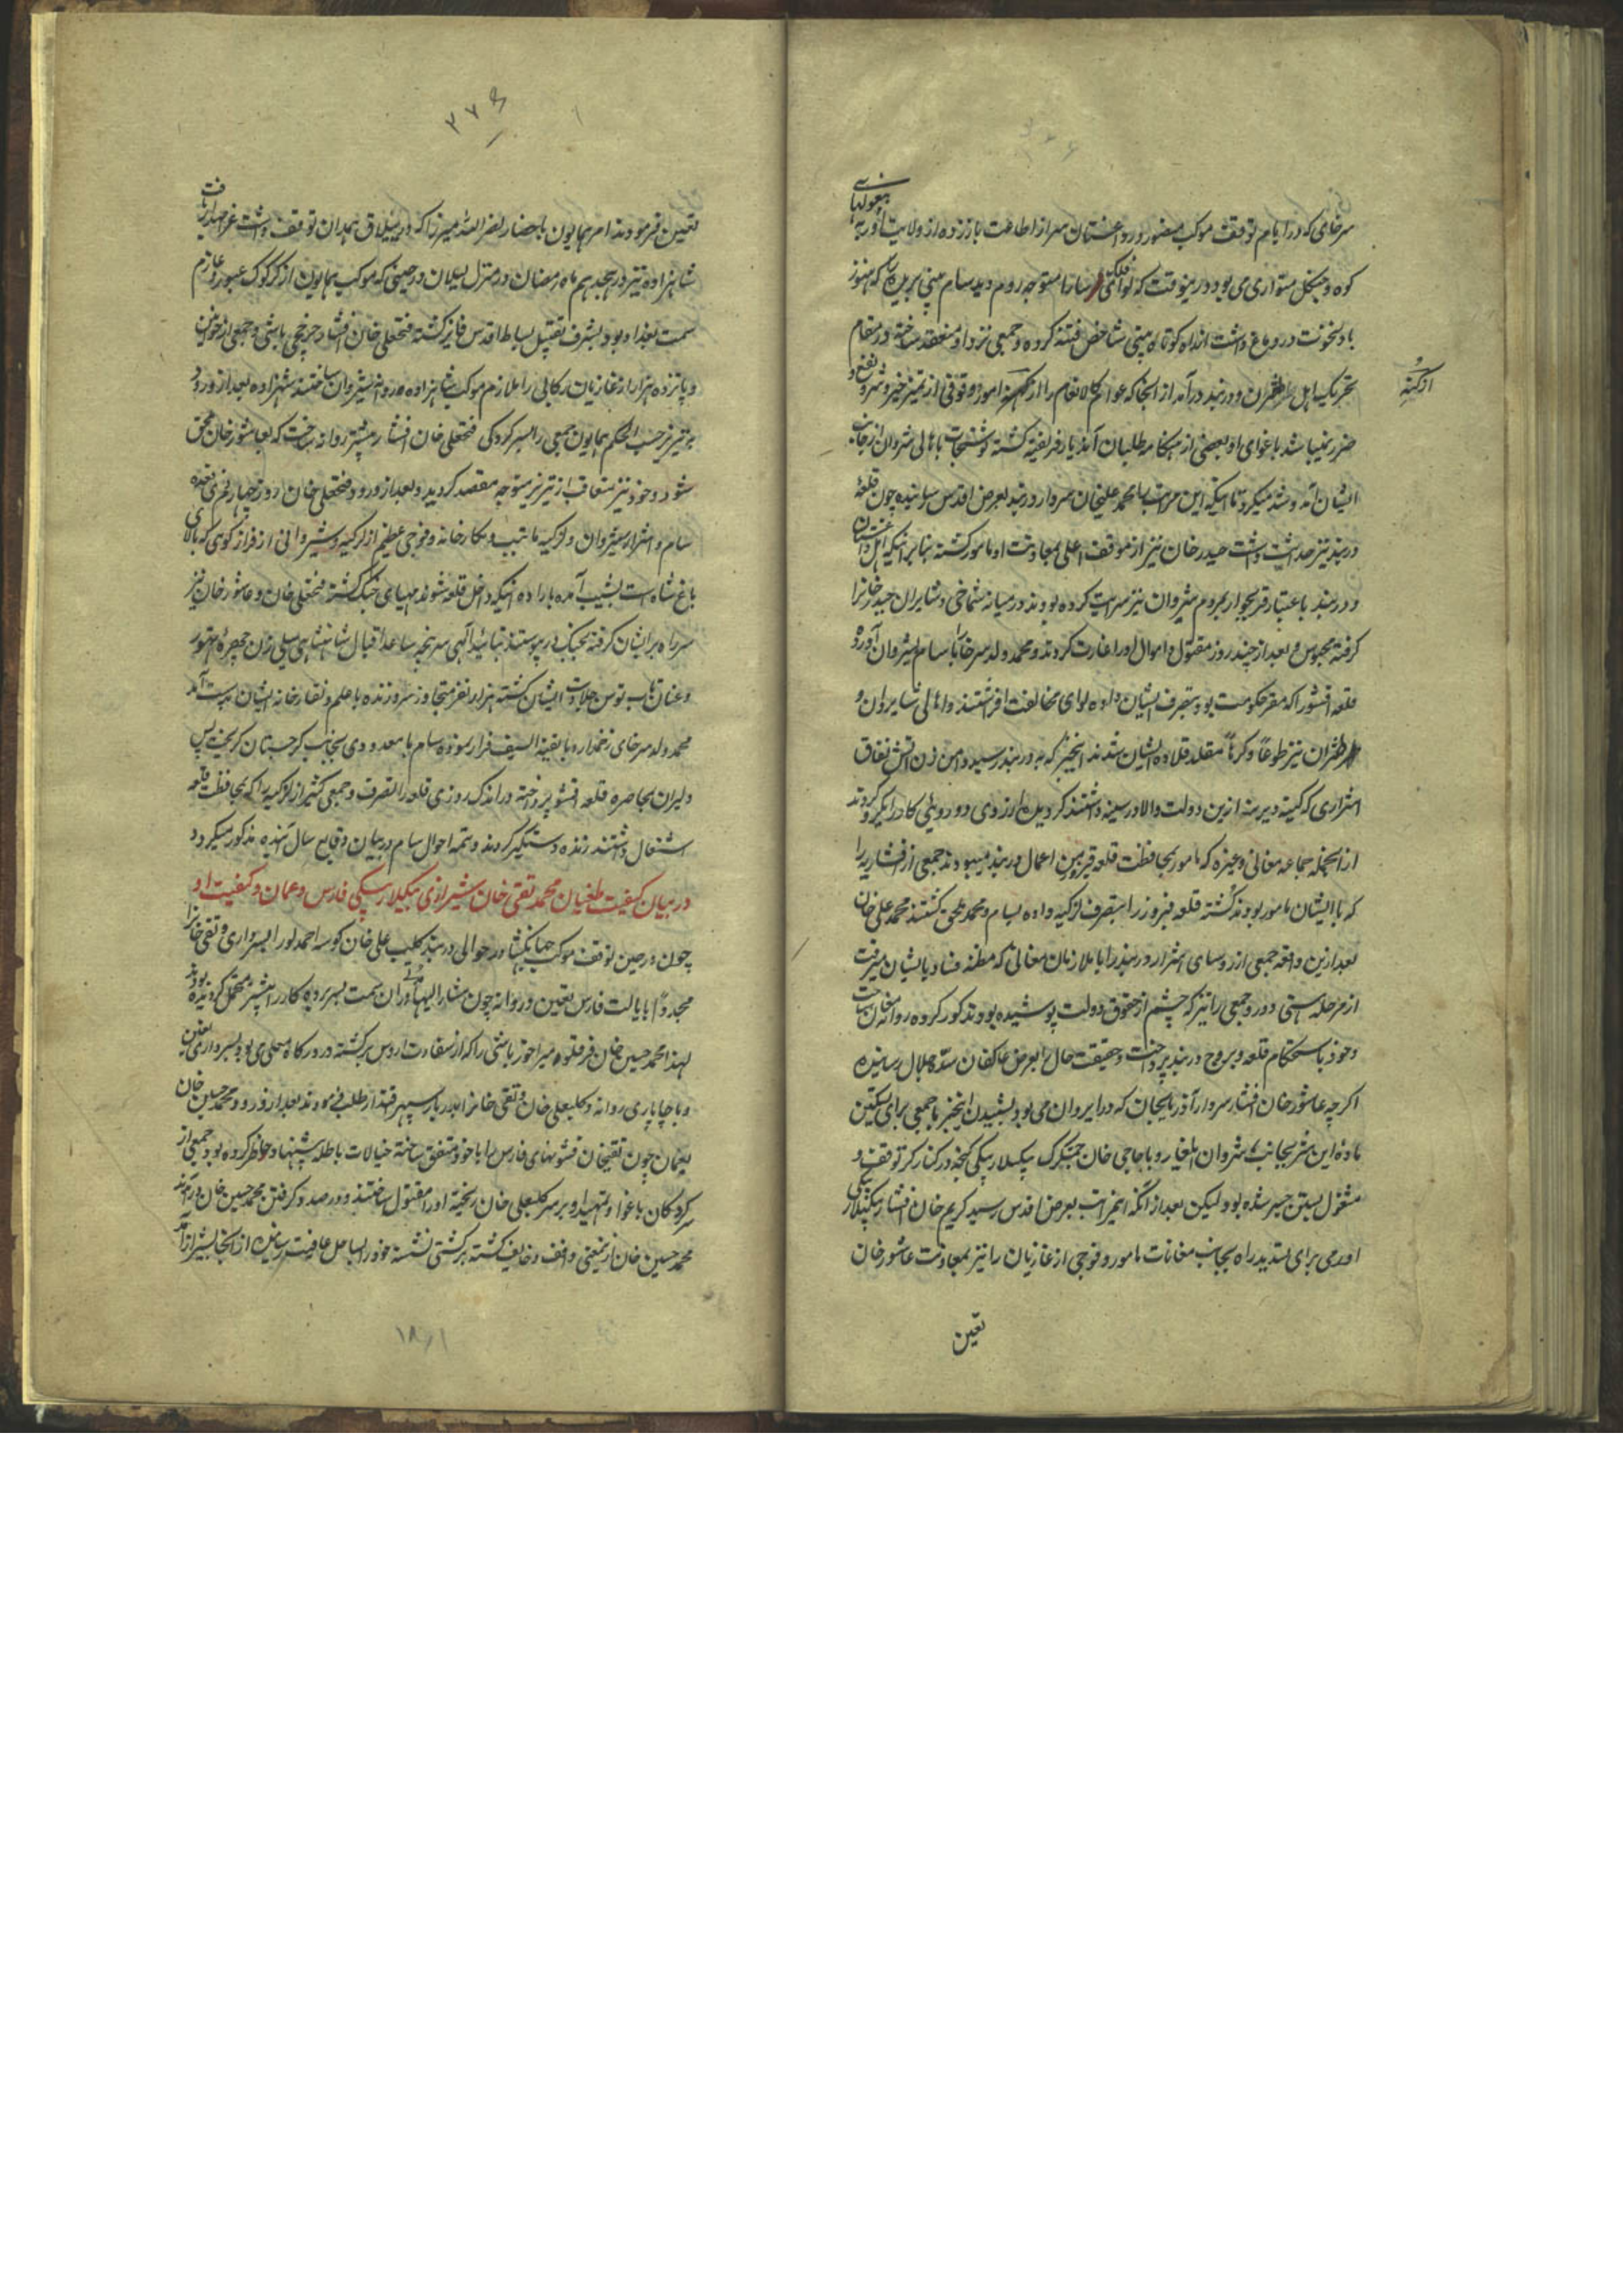 سرخای که در ایام توقف موکب منصور در داغستان سر از اطاعت باز زده از ولایت آوریه به بیغولهای
کوه و جنگل متواری می بود در ینوقت که لوای فلکسا را متوجه روم دید سام بینی بریده را که هنوز
باد نخوت در دماغ داشت انداه کوتاه بینی شاخص فتنه کرده و جمعی نزد او منعقد ساخته در مقام
تحریک اهل طبرسران و دربند در آمد از انجا که عوام کالانعام را از امور وقوفی از تمیز خیر و شر و نفع و
از کنه
ضرر نمیباشد باغوای او بعضی از هنگامه طلبان آندیار فریفته گشته نوشتجات باهالی شروان از جانب
ایشان آمد و شد میکرد تا اینکه این مراتب را محمد علیخان سردار دربند بعرض اقدس رسانیده چون قلعهٔ
دربند نیز حدیث داشت حیدر خان نیز از موقف اعلی بمعاونت او مامور گشته بنا بر اینکه اهل داغستان
و دربند باعتبار قرب جوار بمردم شروان نیز سرایت کرده بودند در میانه شماخی و شابران حیدر خانرا
گرفته محبوس و بعد از چند روز مقتول و اموال او را غارت کردند و محمد ولد سرخای را با سام بشروان آورده
قلعه اقسو را که مقر حکومت بود بتصرف ایشان داده لوای مخالفت افراشتند و اهالی شابران و
طبرسران نیز طوعاً و کرهاً مقلد قلاده ایشان شدند اینخبر که به دربند رسید دامن زن اتش نفاق
اشراری که کینه دیرینه ازین دولت والا در سینه داشتند گردیده از روی دو روئی کار دیگر کردند
از انجمله جماعه مغانی و غیره که مامور بمحافظت قلعه قیر بین اعمال دربند میبودند جمعی از افشاریه را
که با ایشان مامور بودند کشته قلعه فیروز را بتصرف لزکیه داده بسام و محمد ملحق گشتند محمد علی خان
بعد ازین واقعه جمعی از روسای اشرار دربند را با ملازمان مغانی که مظنه فساد بایشان میرفت
از مرحله هستی دور و جمعی را نیز که چشم از حقوق دولت پوشیده بودند کور کرده روانه مغان ساخت
و خود باستحکام قلعه و بروج دربند پرداخت و حقیقت حال را بعرض عاکفان سدّه جلال رسانیده
اگر چه عاشور خان افشار سردار آذربایجان که در ایروان می بود بشنیدن اینخبر با جمعی برای تسکین
ماده این شر بجانب شروان ایلغار و با حاجی خان چمشگزک بیگلر بیگی گنجه در کنار کر توقف و
مشغول بستن جسر شده بود لیکن بعد از انکه اینمراتب بعرض اقدس رسید کریم خان افشار بیگلربیگی
اورمی برای تسدید راه بجانب مغانات مامور و فوجی از غازیان را نیز بمعاونت عاشور خان
تعین
۳۷۶
تعین فرمودند امر همایون باحضار نصر الله میرزا که در ییلاق همدان توقف داشت عز اصدار یافت
شاهزاده نیز در هجدهم ماه رمضان در منزل لیلان در حینی که موکب همایون از کرکوک عبور و عازم
سمت بغداد بود بشرف تقبیل بساط اقدس فایز گشته فتحعلی خان افشار چرخچی باشی و جمعی از خوانین
و پانزده هزار از غازیان رکابی را ملازم موکب شاهزاده و روانه شیروان ساختند شهزاده بعد از ورود
بتبریز حسب الحکم همایون جمعی را بسر کردگی فتحعلی خان افشار پیشتر روانه ساخت که بعاشور خان ملحق
شود و خود نیز متعاقب از تبریز متوجه مقصد گردید و بعد از ورود فتحعلی خان روز چهارم ذی قعده
سام و اشرار شیروان و لزکیه با تیپ و نقارخانه و فوجی عظیم از لزکیه و شیروانی از فراز کوهی که بالای
باغ شاه است بشیب آمده باراده اینکه داخل قلعه شوند مهیای جنگ گشته فتحعلی خان و عاشور خان نیز
سر راه بر ایشان گرفته بجنگ در پیوستند بتائید الهی سر پنجه ساعد اقبال شاهنشاهی سیلی زن چهره تهور
و عنان تاب توسن جلادت ایشان گشته هزار نفر متجاوز سر و زنده با علم و نقارخانه ایشان بدست آمد
محمد ولد سرخای زخمدار و با بقیة السیف فرار نموده سام با معدودی بجانب گرجستان گریخت پس
دلیران بمحاصره قلعه اقسو پرداخته در اندک روزی قلعه را تصرف و جمعی کثیر از لزکیه را که بمحافظت قلعه
اشتغال داشتند زنده دستگیر کردند و تتمه احوال سام در بیان وقایع سال آینده مذکور میگردد
در بیان کیفیت طغیان محمد تقی خان شیرازی بیگلر بیگی فارس و عمان و کیفیت او
چون در حین توقف موکب جهانگشا در حوالی دربند کلب علی خان کوسه احمدلو را بسرداری و تقی خانرا
مجدداً بایالت فارس تعین و روانه چون مشار الیهما در ان سمت بسر برده کار را بیشتر مختل گردیده بودند
لهذا محمد حسین خان قرقلوه میراخور باشی را که از سفارت اروس برگشته در درگاه معلی می بود بسرداری تعین
و با چاپاری روانه و کلبعلی خان و تقی خانرا بدربار سپهر اقتدار طلب فرمودند بعد از ورود محمد حسین خان
بعمان چون تقیخان قشونهای فارس را با خود متفق ساخته خیالات باطله پیشنهاد خاطر کرده بود جمعی از
سرکردگان باغوا و تمهید او بر سر کلبعلی خان ریخته او را مقتول ساختند و در صدد گرفتن محمد حسین خان در آمدند
محمد حسین خان از ینمعنی واقف و خایف گشته بر کشتی نشسته خود را بساحل عافیت رسانیده از انجا بشیراز آمد